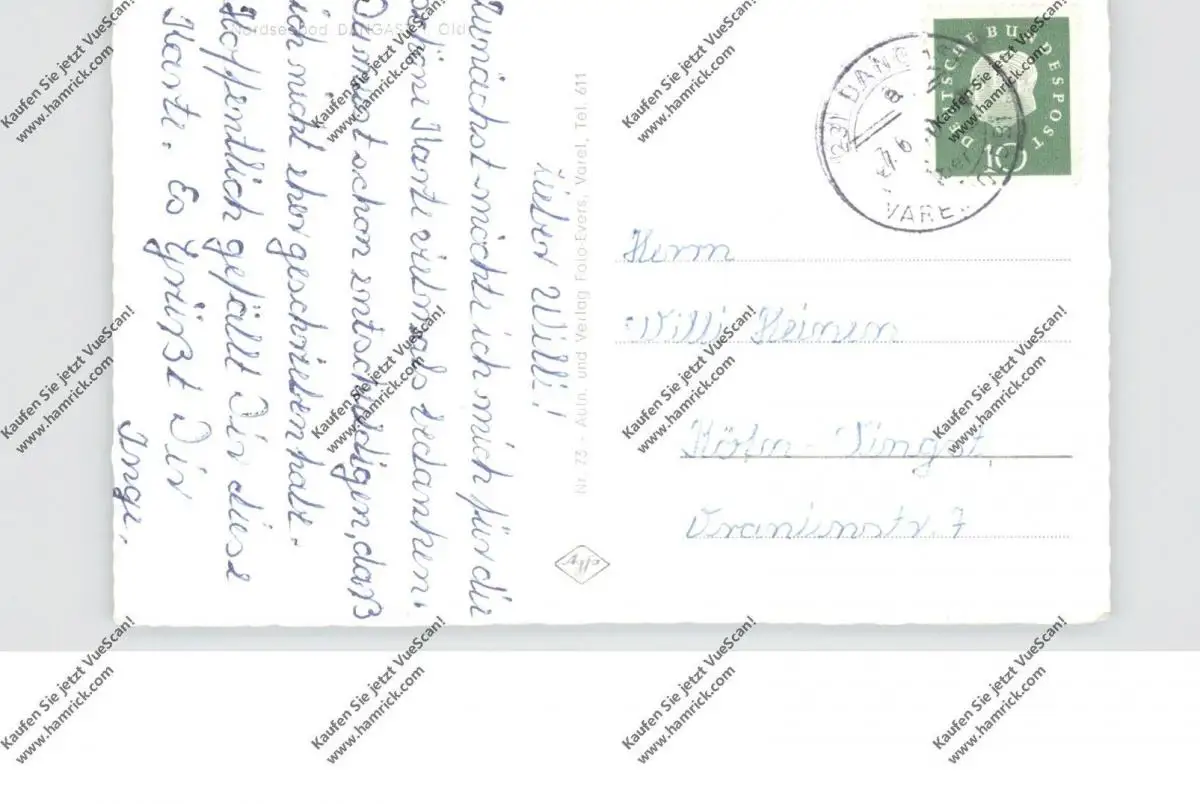 Nordseebad DANGAST i. Old.
Lieber Willi!
Zunächst möchte ich mich für die
schöne Karte vielmals bedanken.
schon entschuldigen, daß
ich nicht eher geschrieben habe.
Hoffentlich gefällt Dir diese
Karte. Es grüßt Dir
Inge.
Nr. 73 - Aufn. und Verlag Foto-Evers, Varel, Tel. 611
Agfa
DEUTSCHE BUNDESPOST
10
(23) DANG
VAREL
Herrn
Willi Heinen
Köln-Vingst
Oranienstr. 7
Kaufen Sie jetzt VueScan!
www.hamrick.com
Kaufen Sie jetzt VueScan!
www.hamrick.com
Kaufen Sie jetzt VueScan!
www.hamrick.com
Kaufen Sie jetzt VueScan!
www.hamrick.com
Kaufen Sie jetzt VueScan!
www.hamrick.com
Kaufen Sie jetzt VueScan!
www.hamrick.com
Kaufen Sie jetzt VueScan!
www.hamrick.com
Kaufen Sie jetzt VueScan!
www.hamrick.com
Kaufen Sie jetzt VueScan!
www.hamrick.com
Kaufen Sie jetzt VueScan!
www.hamrick.com
Kaufen Sie jetzt VueScan!
www.hamrick.com
Kaufen Sie jetzt VueScan!
www.hamrick.com